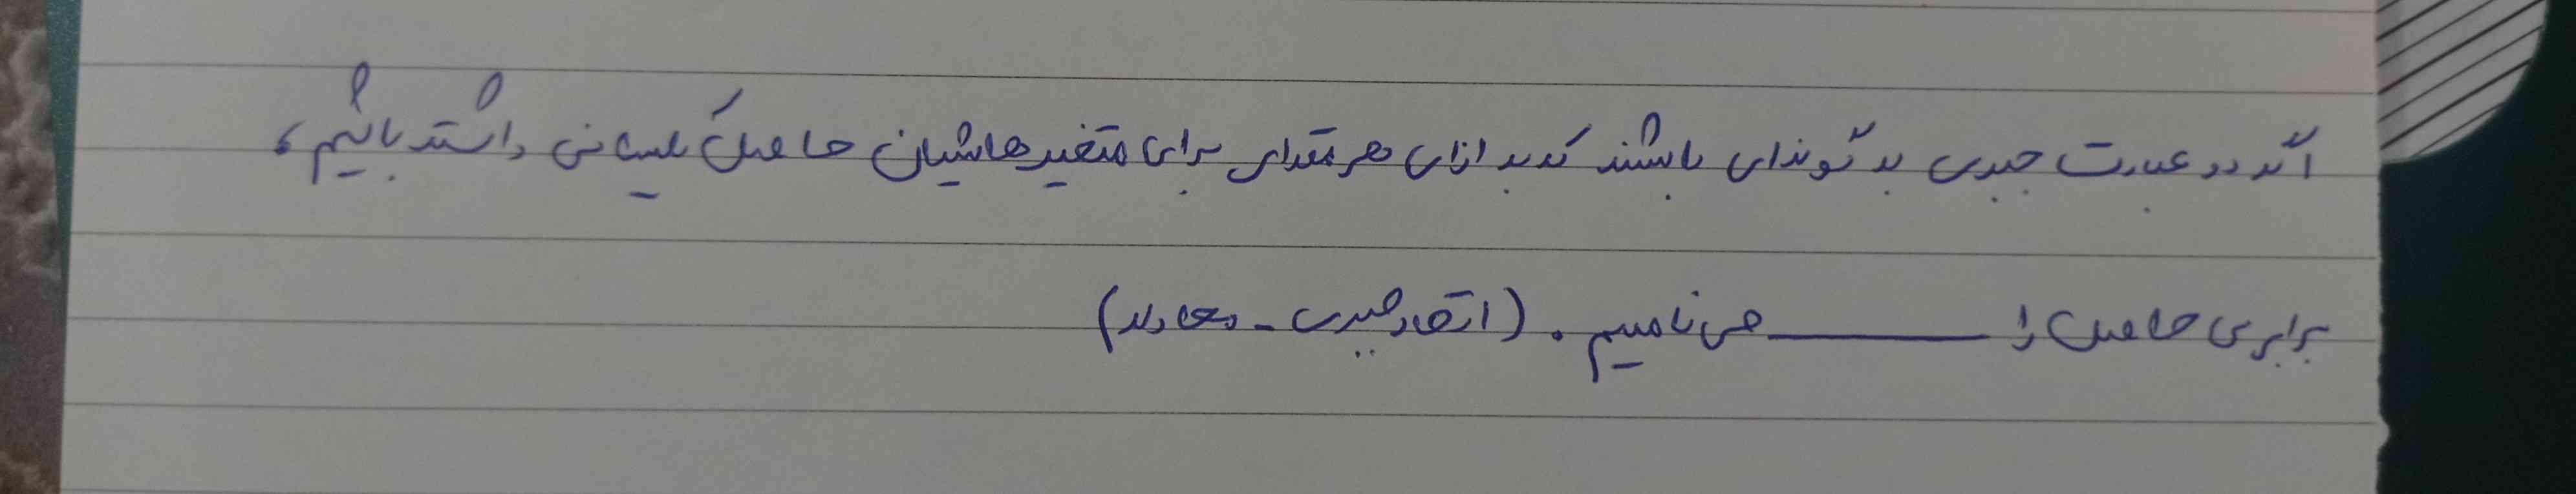 اگر دو عبارت جبری به گونه‌ای باشند که به ازای هر مقدار برای متغیرهایشان حاصل یکسانی داشته باشیم،
برابری حاصل را ــــــــــ می‌نامیم. (اتحاد جبری - معادله)